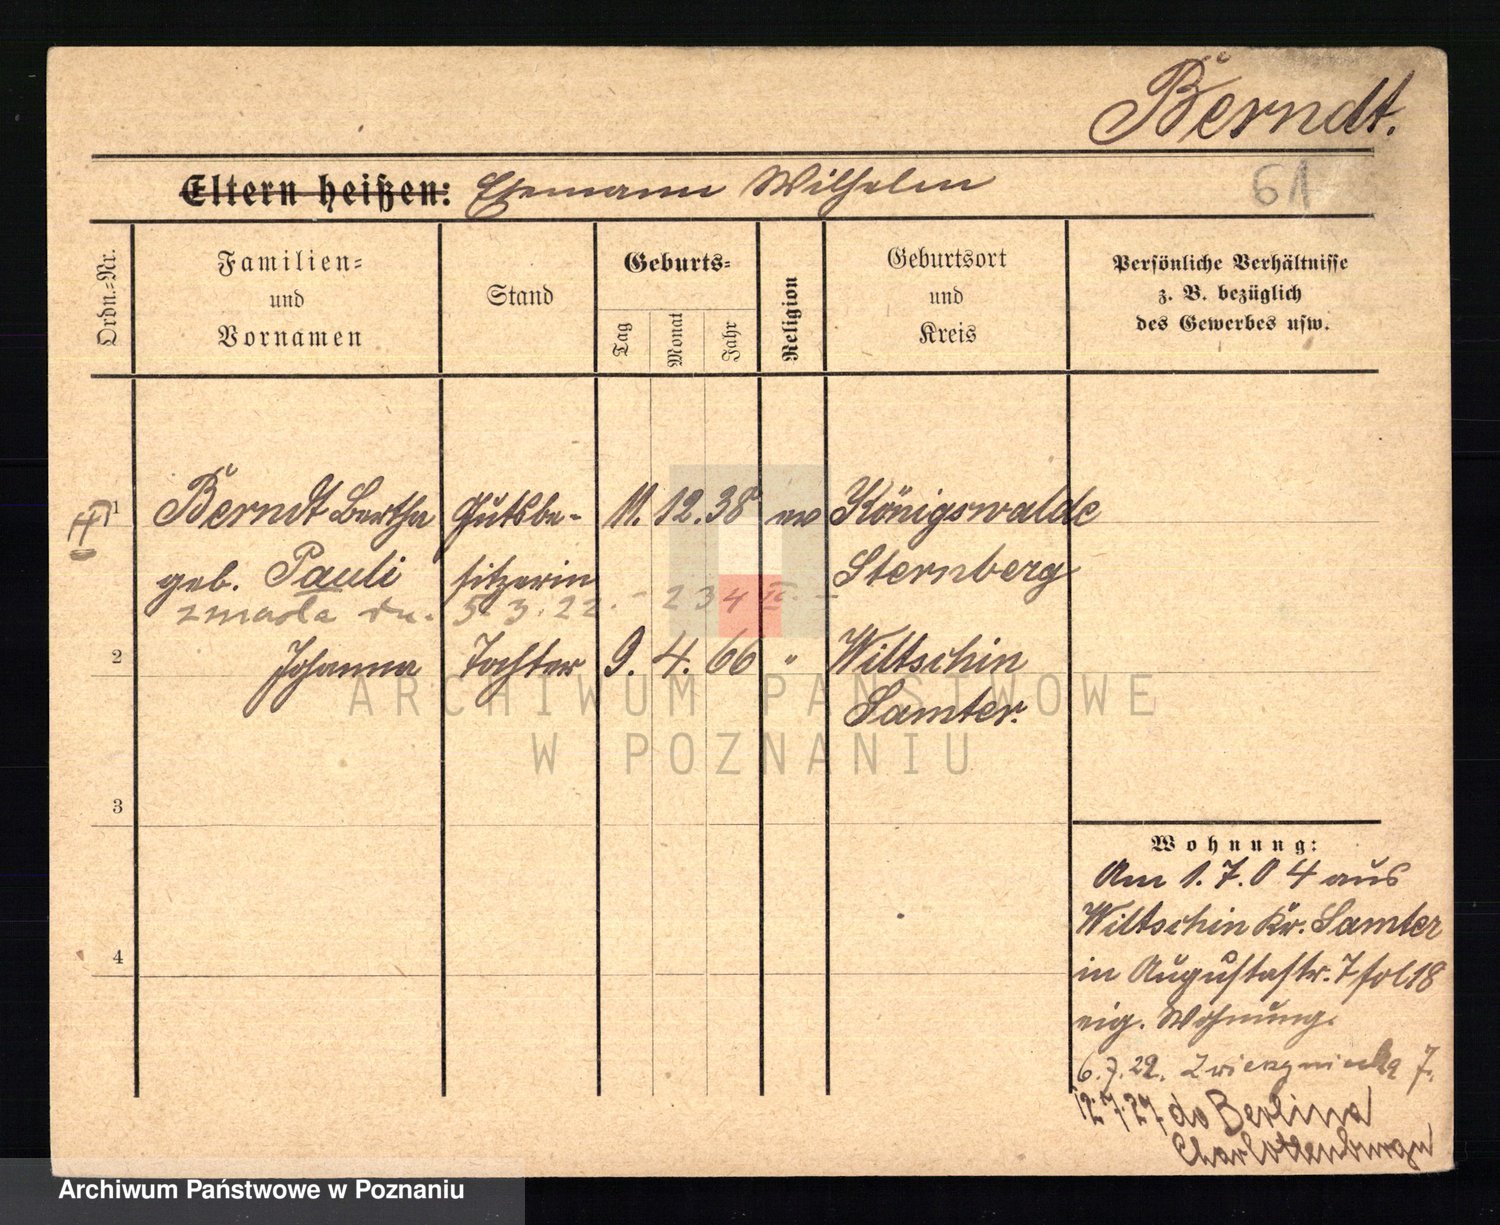 Berndt.
Eltern heißen: Ehemann Wilhelm
61
Ordn.-Nr.
Familien-
und
Vornamen
Stand
Geburts-
Tag
Monat
Jahr
Religion
Geburtsort
und
Kreis
Persönliche Verhältnisse
z. B. bezüglich
des Gewerbes usw.
1
Berndt Bertha Gutsbe- 11. 12. 38 ev Königswalde
geb. Pauli sitzerin Sternberg
zmarła dn. 5. 3. 22. - 234 II. -
2
Johanna Tochter 9. 4. 66 " Wiltschin
Samter.
3
4
Wohnung:
Am 1. 7. 04 aus
Wiltschin Kr. Samter
in Augustastr. 7 fol 18
eig. Wohnung.
6. 7. 22. Zwierzyniecka 7.
12 7. 27 do Berlina
Charlottenburga
ARCHIWUM PAŃSTWOWE
W POZNANIU
Archiwum Państwowe w Poznaniu